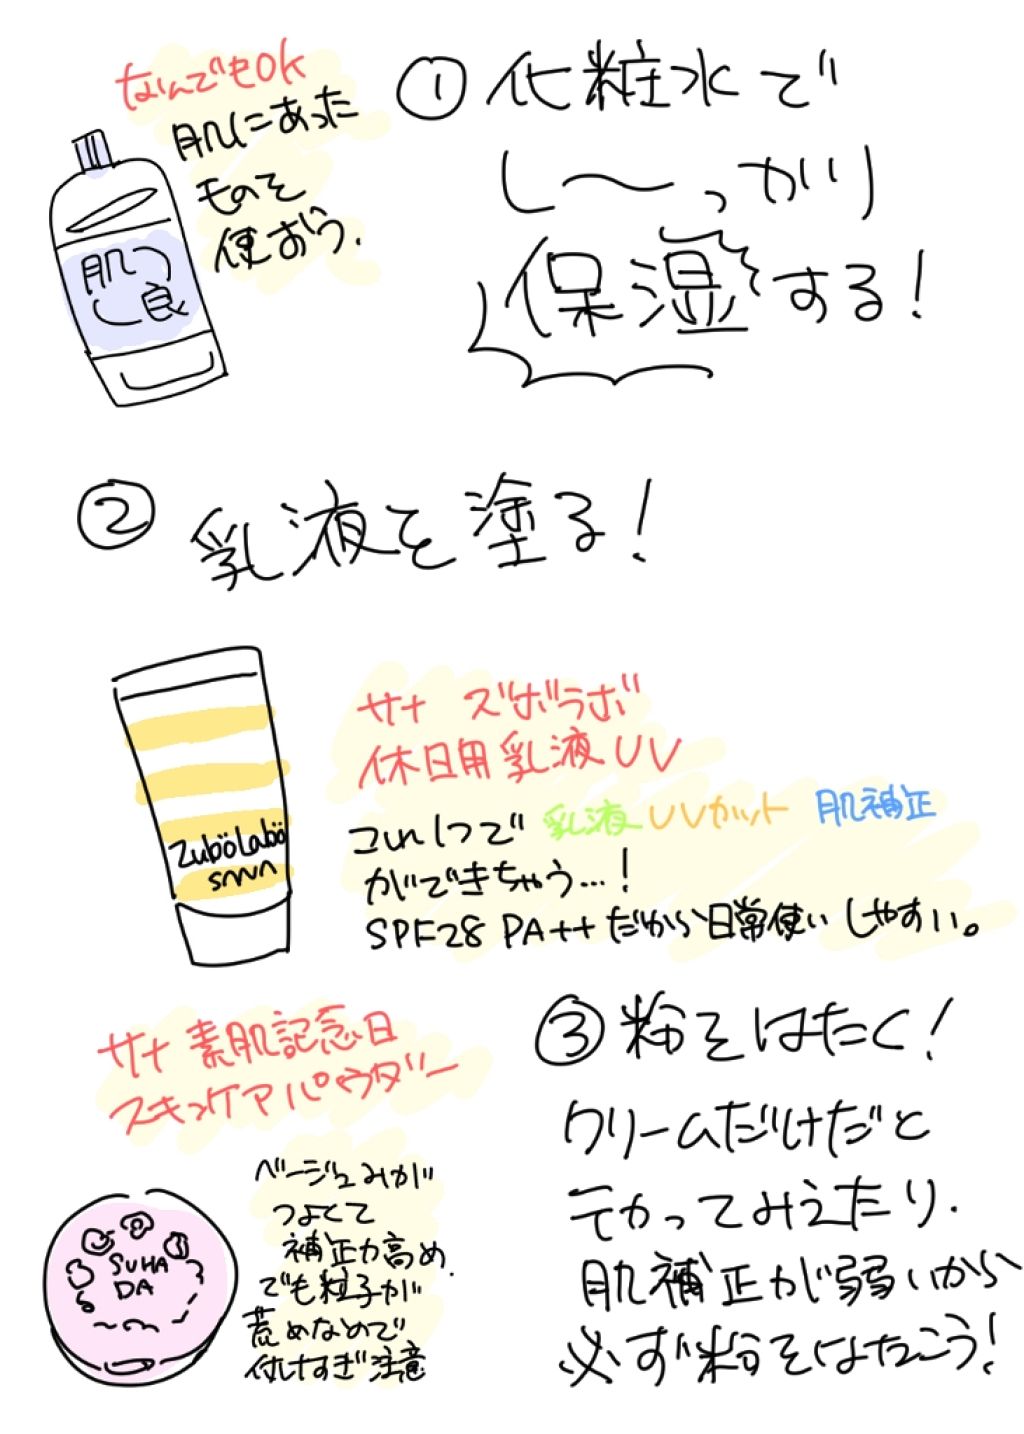 ① 化粧水で
し〜っかり
保湿する!
なんでもOK
肌にあった
ものを
使おう.
肌
良
② 乳液を塗る!
サナ ズボラボ
休日用乳液UV
コレ1つで 乳液 UVカット 肌補正
ができちゃう…!
SPF28 PA++だから日常使いしやすい。
Zubölabö
sana
③ 粉をはたく!
クリームだけだと
テカってみえたり.
肌補正が弱いから
必ず粉をはたこう!
サナ 素肌記念日
スキンケアパウダー
ベージュみが
つよくて
補正力高め.
でも粒子が
荒めなので
付けすぎ注意
SUHA
DA